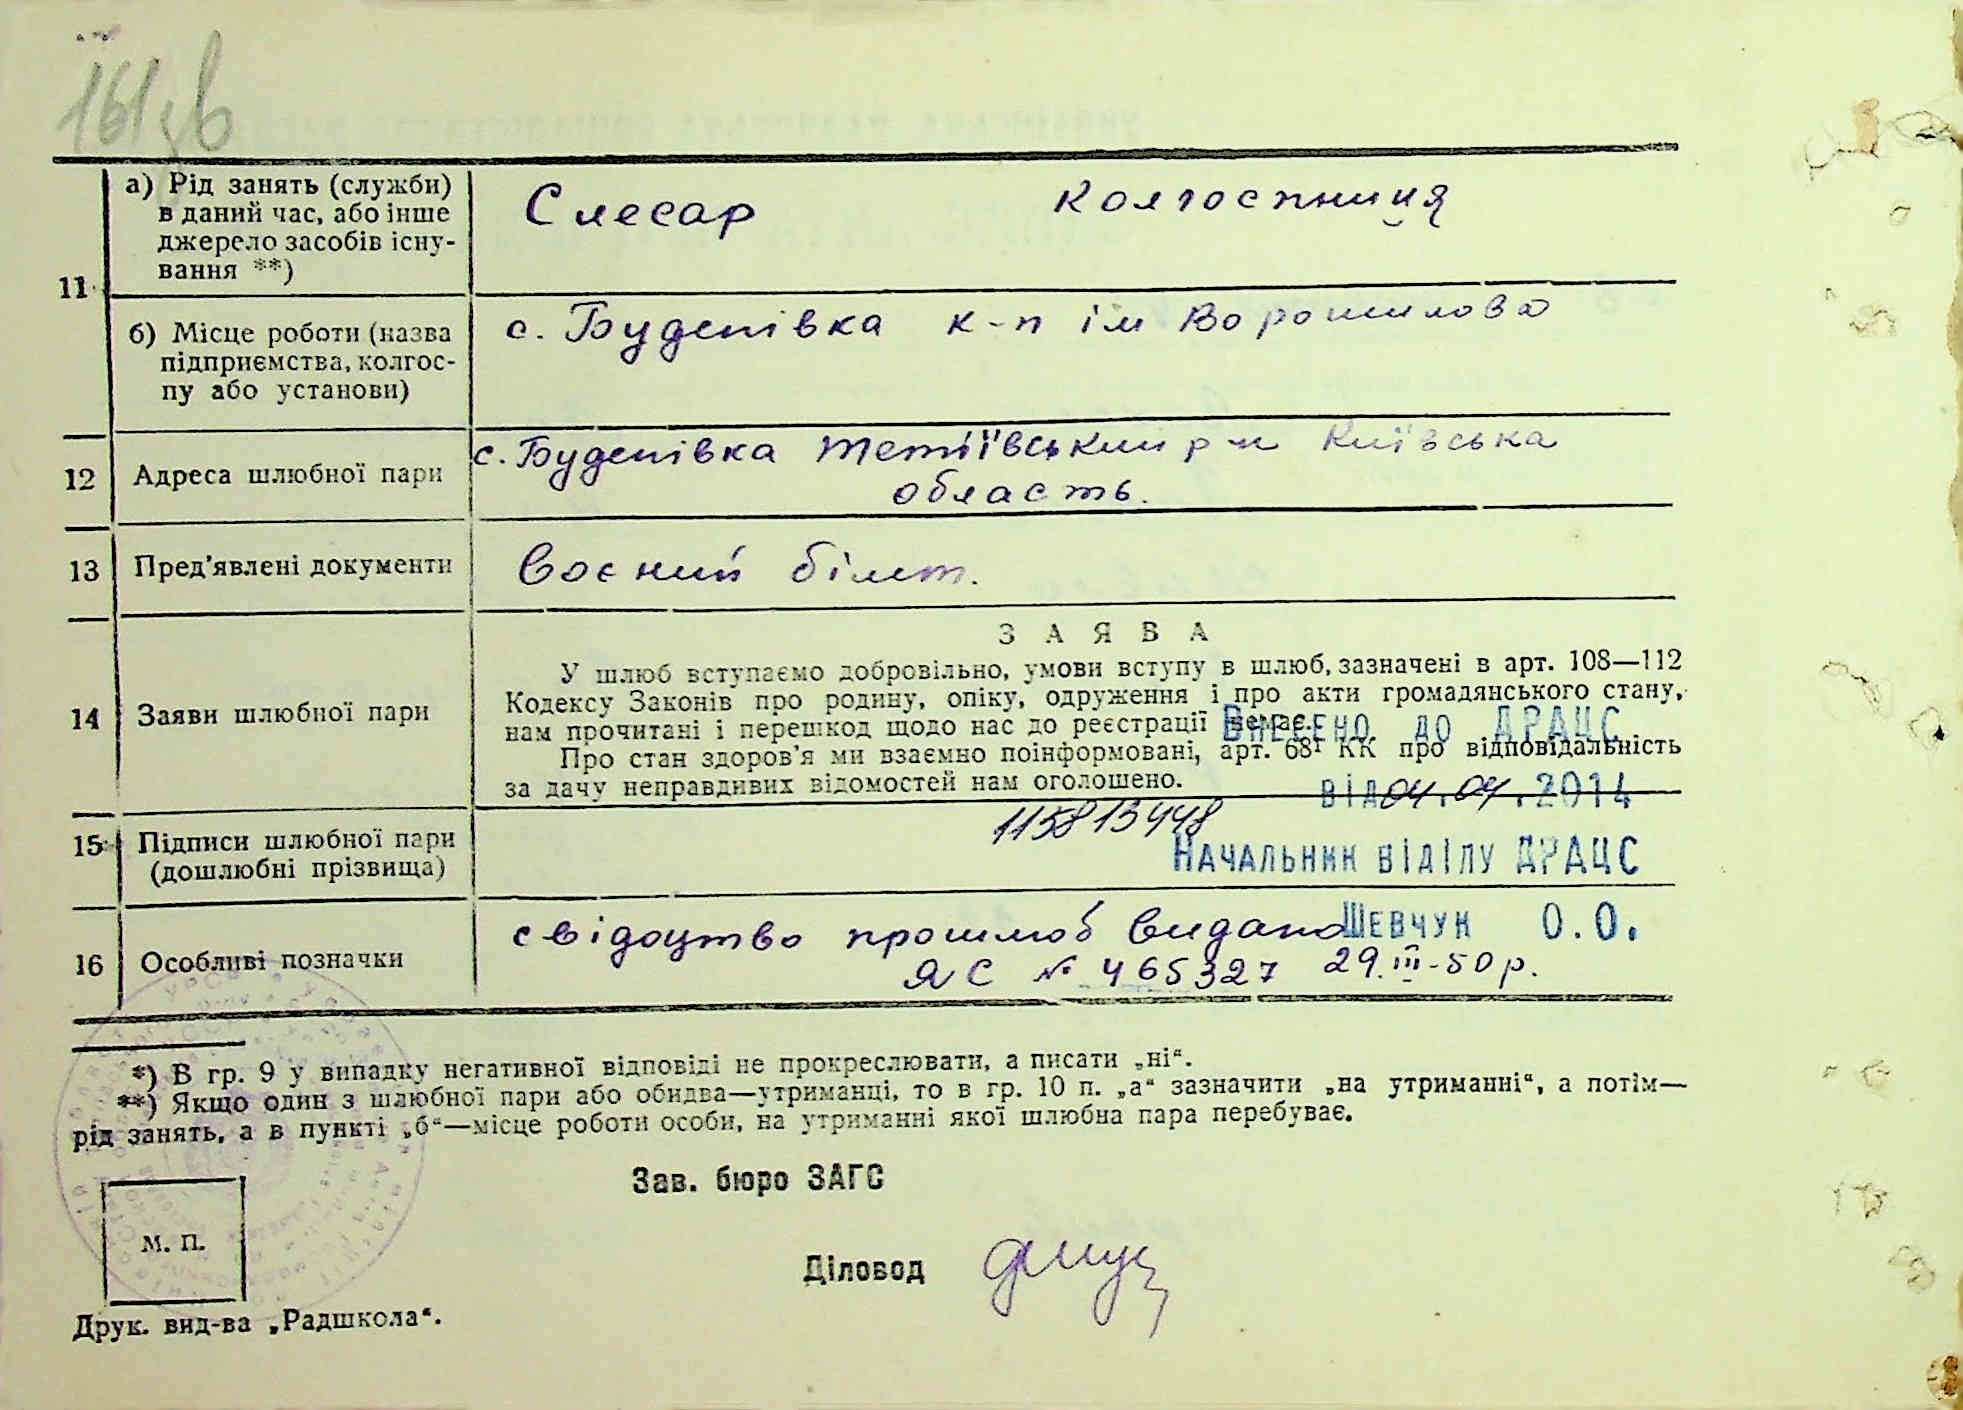 161зв
11
а) Рід занять (служби)
в даний час, або інше
джерело засобів існу-
вання **)
Слесар колгоспниця
б) Місце роботи (назва
підприємства, колгос-
пу або установи)
с. Буденівка к-п ім Ворошилова
12 Адреса шлюбної пари
с. Буденівка Тетіївський р-н Київська
область.
13 Пред'явлені документи
Воєний білєт.
14 Заяви шлюбної пари
ЗАЯВА
У шлюб вступаємо добровільно, умови вступу в шлюб, зазначені в арт. 108—112
Кодексу Законів про родину, опіку, одруження і про акти громадянського стану,
нам прочитані і перешкод щодо нас до реєстрації немає.
Про стан здоров'я ми взаємно поінформовані, арт. 68¹ КК про відповідальність
за дачу неправдивих відомостей нам оголошено.
Внесено до ДРАЦС
від 04.04.2014
115813448
Начальник віділу ДРАЦС
Шевчук О.О.
15 Підписи шлюбної пари
(дошлюбні прізвища)
16 Особливі позначки
свідоцтво прошлюб видано
ЯС № 465327 29.III-50р.
*) В гр. 9 у випадку негативної відповіді не прокреслювати, а писати „ні“.
**) Якщо один з шлюбної пари або обидва—утриманці, то в гр. 10 п. „а“ зазначити „на утриманні“, а потім—
рід занять, а в пункті „б“—місце роботи особи, на утриманні якої шлюбна пара перебуває.
Зав. бюро ЗАГС
м. п.
Діловод
Друк. вид-ва „Радшкола“.